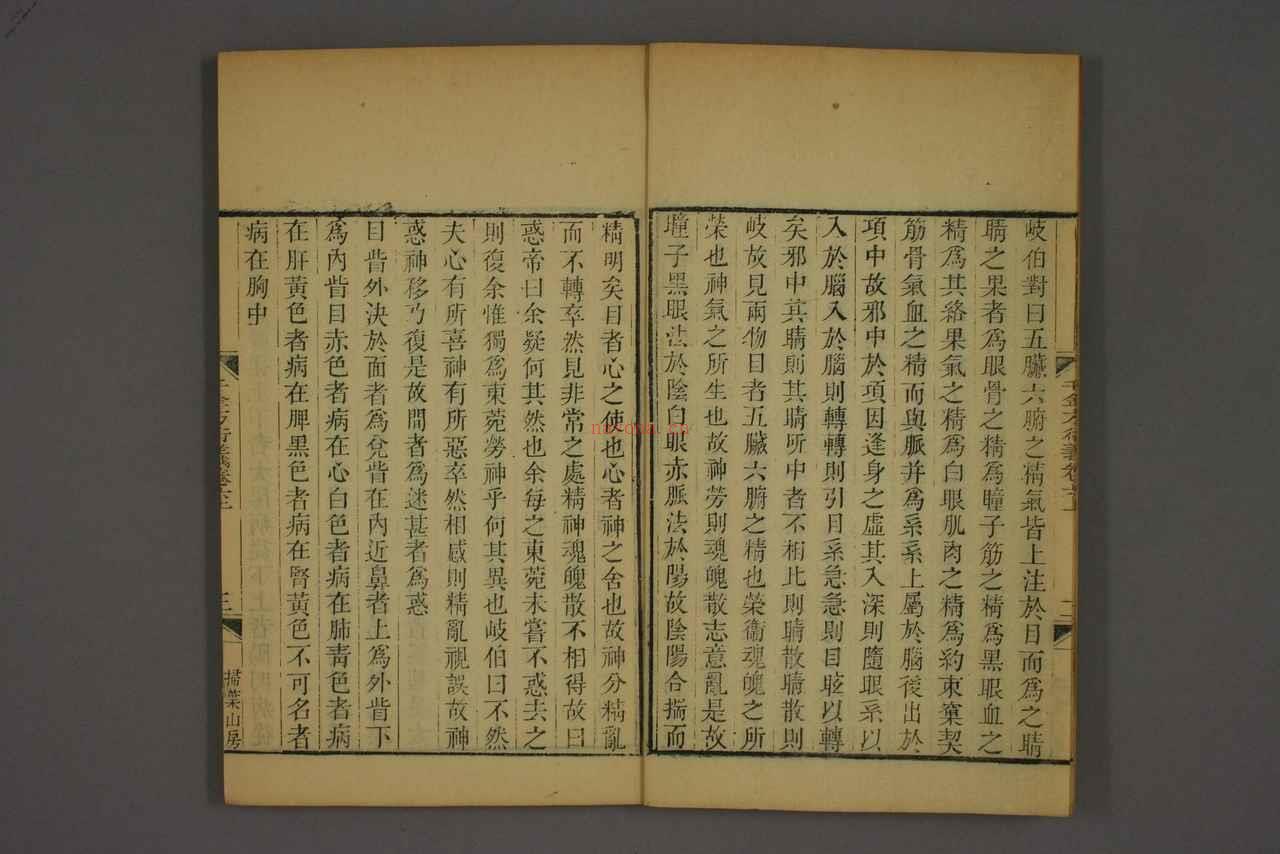 岐伯對曰五臟六腑之精氣皆上注於目而爲之睛
睛之果者爲眼骨之精爲瞳子筋之精爲黑眼血之
精爲其絡果氣之精爲白眼肌肉之精爲約束窠契
筋骨氣血之精而與脈并爲系系上屬於腦後出於
項中故邪中於項因逢身之虛其入深則隨眼系以
入於腦入於腦則轉轉則引目系急急則目眩以轉
矣邪中其睛則其睛所中者不相比則睛散睛散則
岐故見兩物目者五臟六腑之精也榮衞魂魄之所
榮也神氣之所生也故神勞則魂魄散志意亂是故
瞳子黑眼法於陰白眼赤脈法於陽故陰陽合揣而
精明矣目者心之使也心者神之舍也故神分精亂
而不轉卒然見非常之處精神魂魄散不相得故曰
惑帝曰余疑何其然也余每之東菀未嘗不惑去之
則復余惟獨爲東菀勞神乎何其異也岐伯曰不然
夫心有所喜神有所惡卒然相感則精亂視誤故神
惑神移乃復是故間者爲迷甚者爲惑
目眥外決於面者爲兌眥在內近鼻者上爲外眥下
爲內眥目赤色者病在心白色者病在肺靑色者病
在肝黃色者病在脾黑色者病在腎黃色不可名者
病在胸中
千金方衍義卷六上
三
掃葉山房